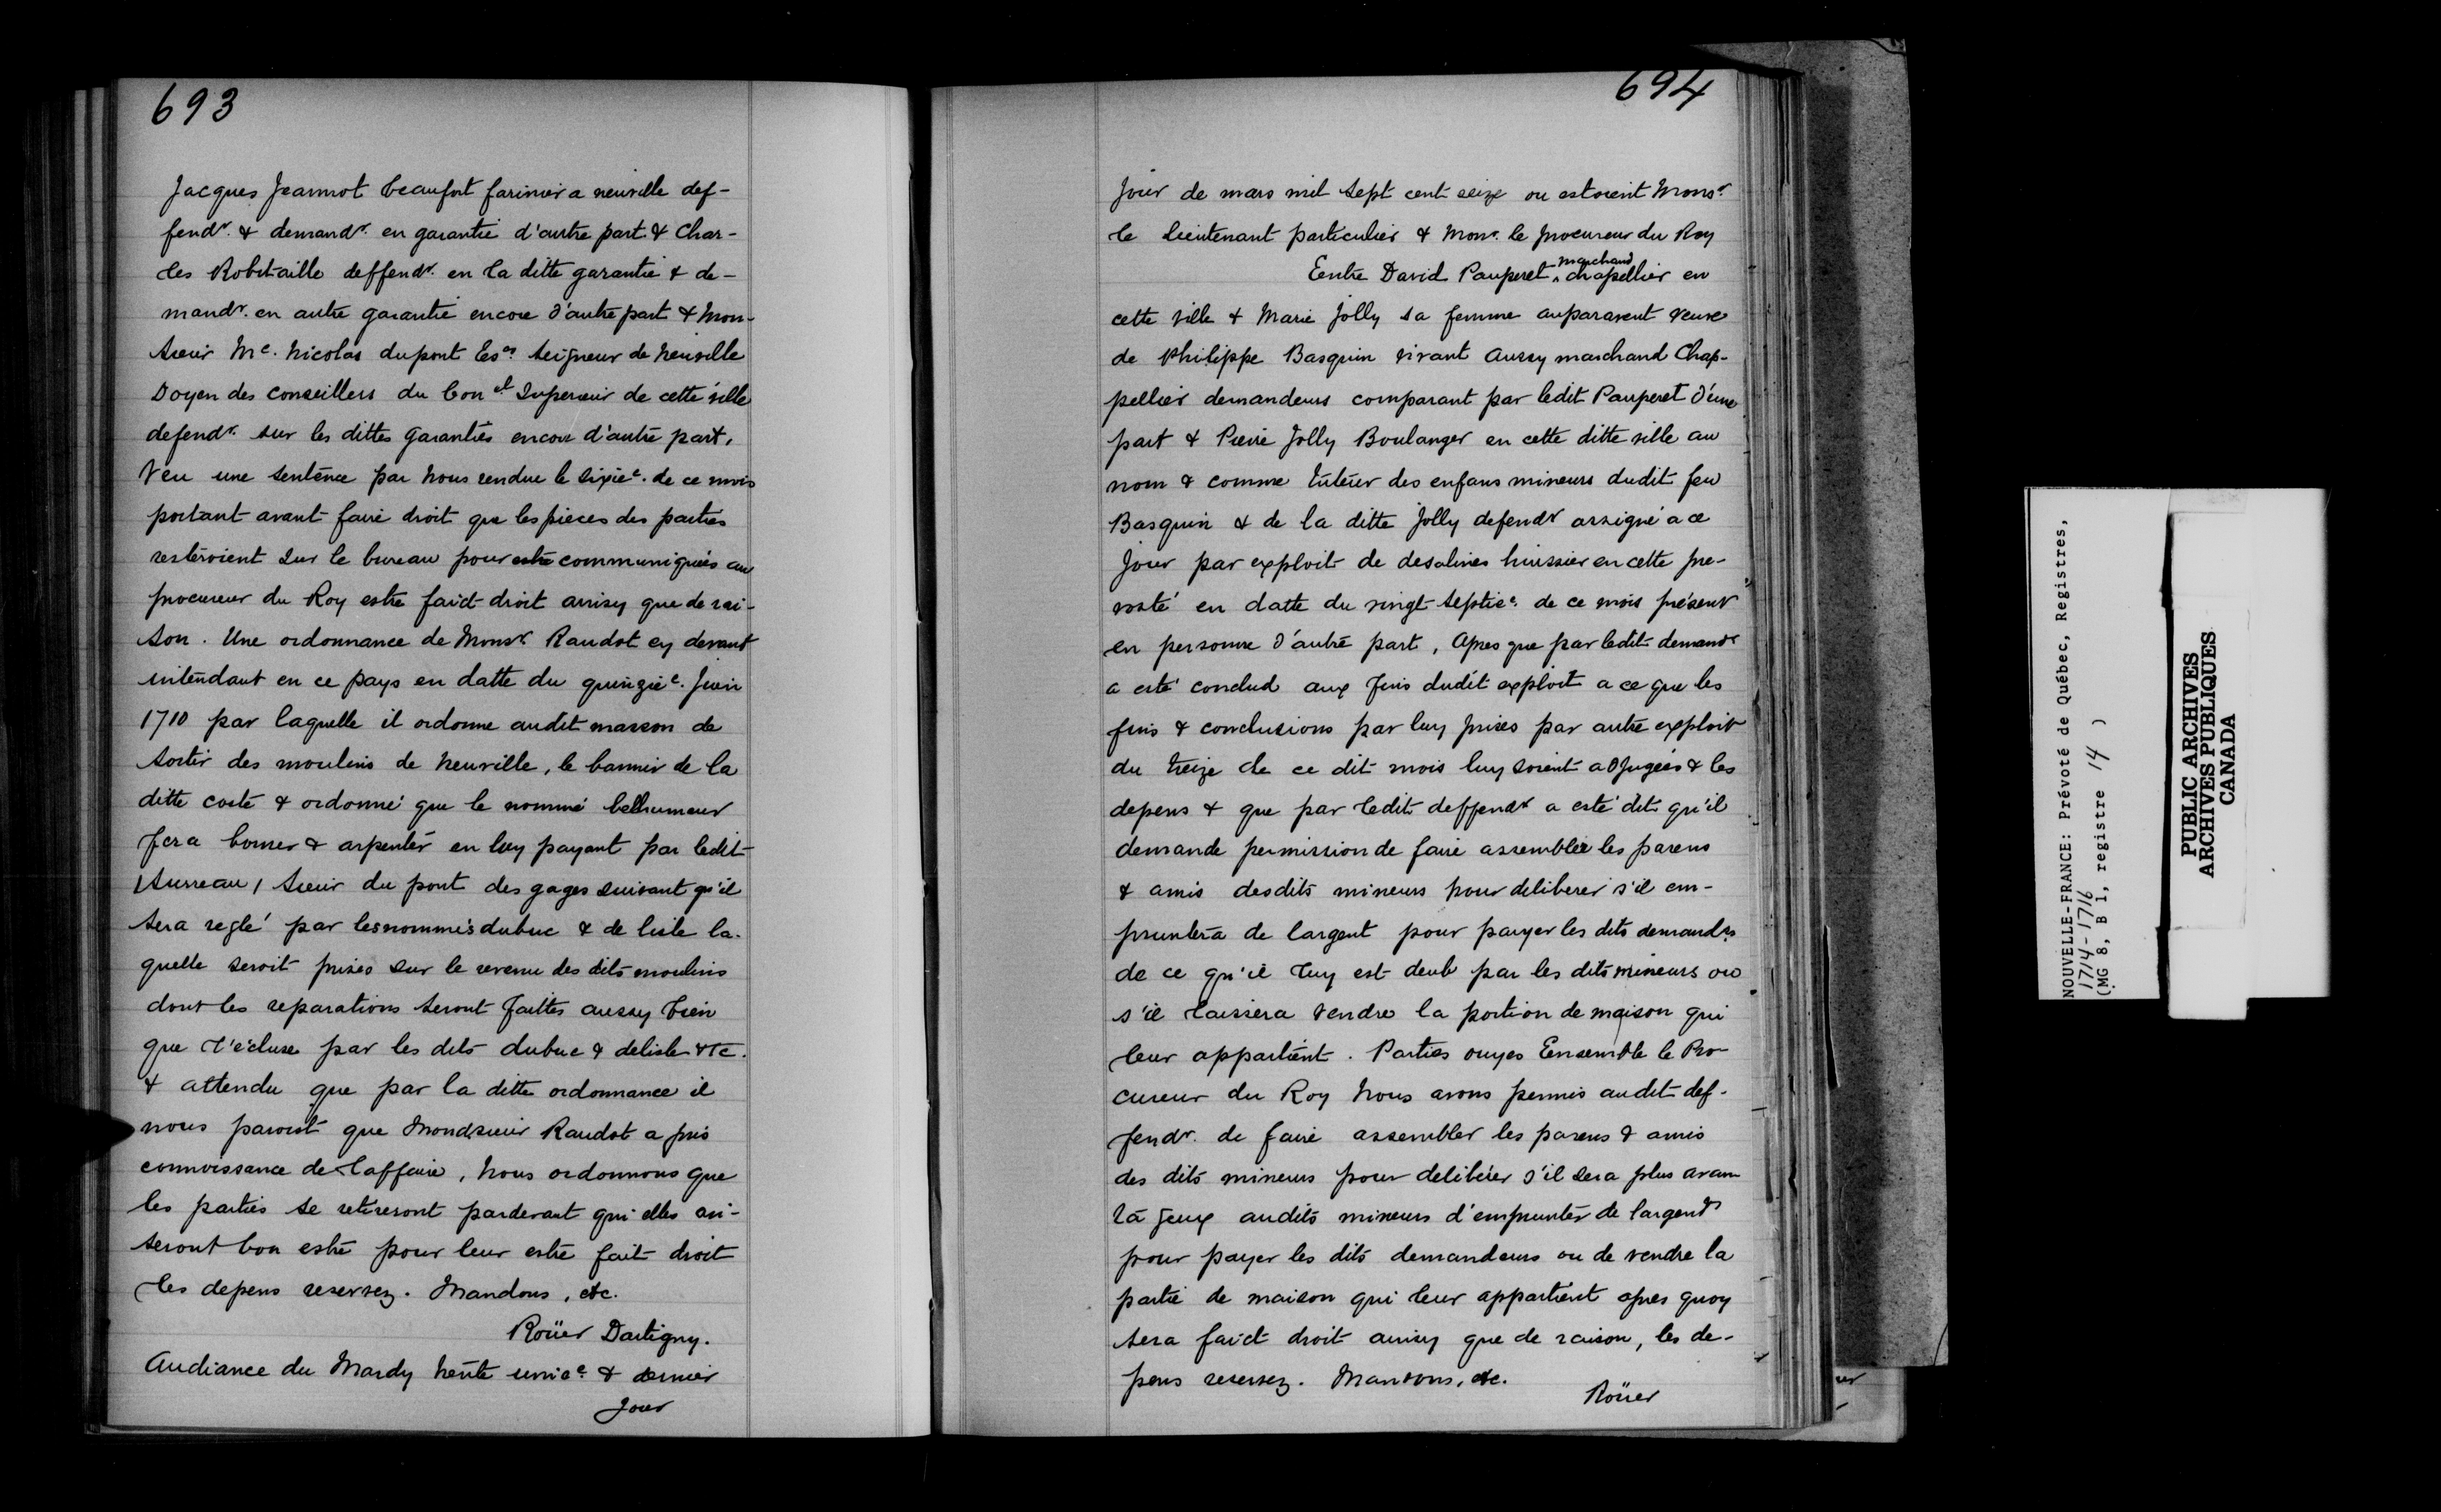 693
Jacques Jeannot beaufort farinier a neuville def-
fendr. & demandr. en garantie d'autre part & Char-
les Robitaille deffendr. en la ditte garantie & de-
mandr. en autre garantie encore d'autre part & Mon-
sieur Me. Nicolas dupont Eser. seigneur de Neuville
Doyen des conseillers du Conel Superieur de cette ville
defendr. sur les dittes garanties encore d'autre part.
Veu une sentence par Nous rendue le sixie. de ce mois
portant avant faire droit que les pieces des parties
resteroient sur le bureau pour estre communiquées au
procureur du Roy estre faict droit ainsy que de rai-
son. Une ordonnance de Monsr Raudot cy devant
intendant en ce pays en datte du quinzie. Juin
1710 par laquelle il ordonne audit masson de
sortir des moulins de Neuville, le bannir de la
ditte coste & ordonné que le nommé belhumeur
fera borner & arpenter en luy payant par ledit
/ Sureau / Sieur du pont des gages suivant qu'il
sera reglé par les nommés dubuc & de lisle la-
quelle seroit prises sur le revenu des dits moulins
dont les reparations seront faittes aussy bien
que l'écluse par les dits dubuc & delisle &c.
& attendu que par la ditte ordonnance il
nous paroist que Mondsieur Raudot a pris
connoissance de l'affaire, Nous ordonnons que
les parties se retireront pardevant qui elles avi-
seront bon estre pour leur estre fait droit
les depens reservez. Mandons, etc.
Roüer Dartigny.
Audiance du Mardy trente unie. & dernier
Jour
694
Jour de mars mil sept cent seize ou estoient Monsr.
le lieutenant particulier & Monr. le procureur du Roy
Entre David Pauperet marchand chapellier en
cette ville & Marie Jolly sa femme auparavent veuve
de Philippe Basquin vivant aussy marchand Chap-
pellier demandeurs comparant par ledit Pauperet d'une
part & Pierre Jolly Boulanger en cette ditte ville au
nom & comme tuteur des enfans mineurs dudit feu
Basquin & de la ditte Jolly defendr assigné a ce
Jour par exploit de desalines huissier en cette pre-
vosté en datte du vingt septie. de ce mois présent
en personne d'autre part, Apres que par ledit demandr
a esté conclud aux fins dudit exploit a ce que les
fins & conclusions par luy prises par autre exploit
du treize de ce dit mois luy soient adjugées & les
depens & que par ledit deffendr a esté dit qu'il
demande permission de faire assembler les parens
& amis desdits mineurs pour deliberer s'il em-
pruntera de largent pour payer les dits demandrs
de ce qu'il luy est deub par les dits mineurs ou
s'il laissera vendre la portion de maison qui
leur appartient. Parties ouyes Ensemble le Pro-
cureur du Roy Nous avons permis audit def-
fendr. de faire assembler les parens & amis
des dits mineurs pour deliberer s'il sera plus avan-
tageux audits mineurs d'emprunter de largent
pour payer les dits demandeurs ou de vendre la
partie de maison qui leur appartient apres quoy
sera faict droit ainsy que de raison, les de-
pens reservez. Mandons, etc.
Roüer
NOUVELLE-FRANCE: Prévoté de Québec, Registres,
1714-1716
(MG 8, B 1, registre 14 )
PUBLIC ARCHIVES
ARCHIVES PUBLIQUES
CANADA